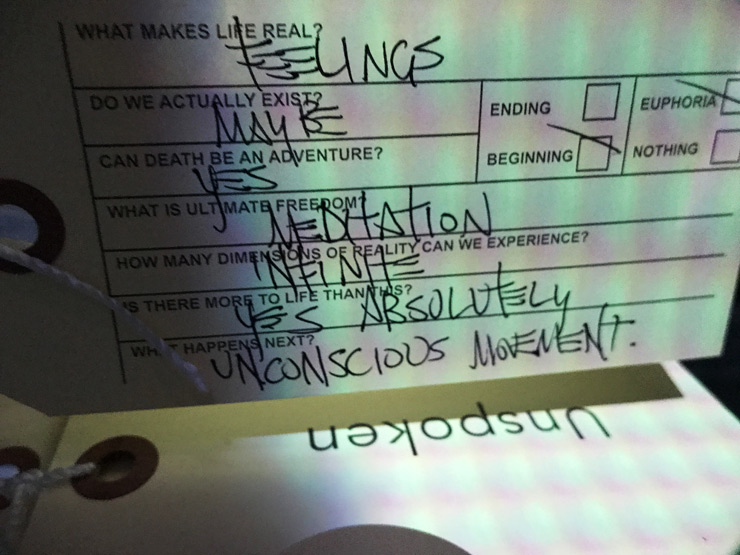 WHAT MAKES LIFE REAL?
FEELINGS
DO WE ACTUALLY EXIST?
MAYBE
ENDING
EUPHORIA
CAN DEATH BE AN ADVENTURE?
YES
BEGINNING
NOTHING
WHAT IS ULTIMATE FREEDOM?
MEDITATION
HOW MANY DIMENSIONS OF REALITY CAN WE EXPERIENCE?
INFINITE
IS THERE MORE TO LIFE THAN THIS?
YES ABSOLUTELY
WHAT HAPPENS NEXT?
UNCONSCIOUS MOVEMENT.
Unspoken